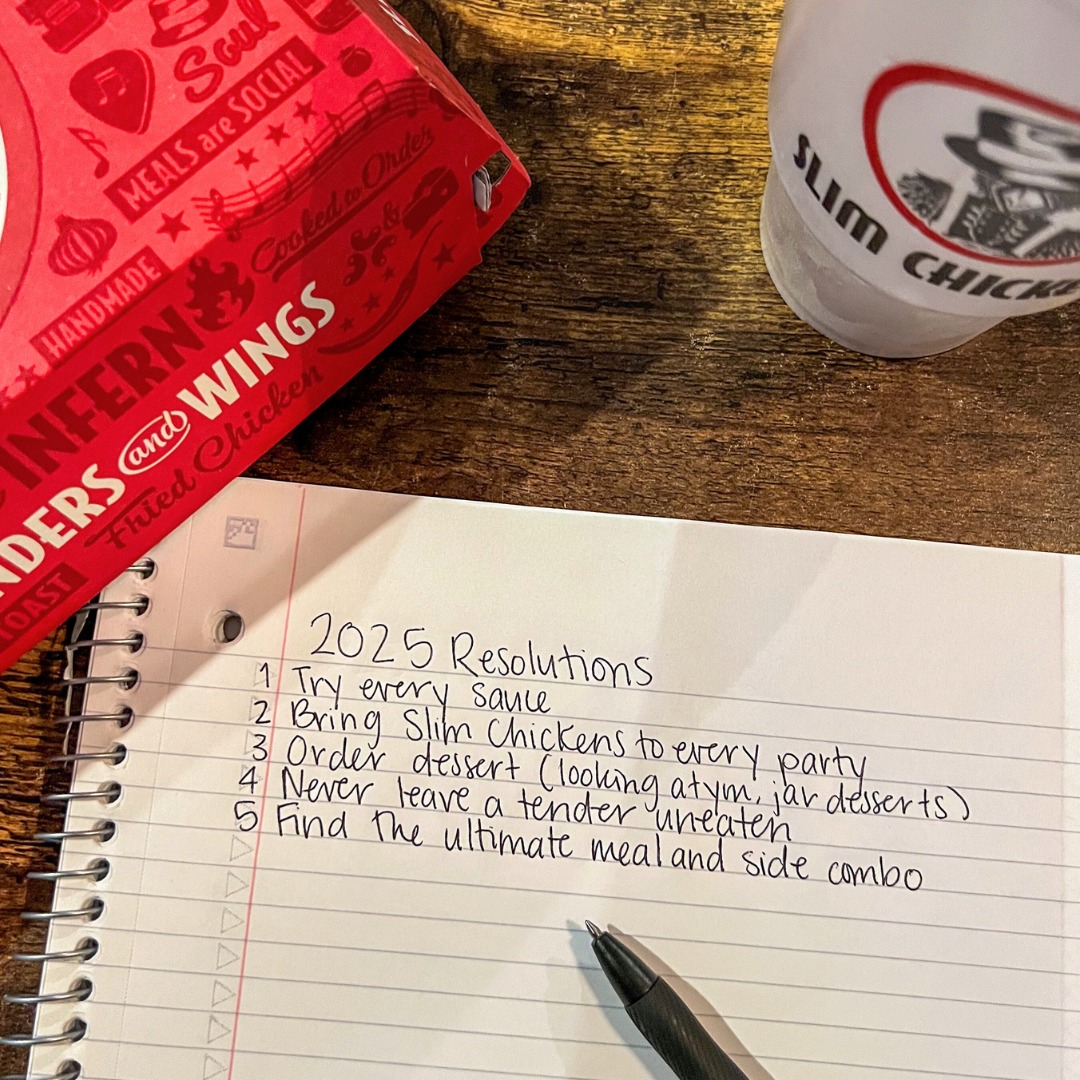 Soul
MEALS are SOCIAL
Cooked to Order
&
HANDMADE
INFERN
NDERS and WINGS
Fried Chicken
TOAST
SLIM CHICKE
2025 Resolutions
1 Try every sauce
2 Bring Slim Chickens to every party
3 Order dessert (looking at ym, jar desserts)
4 Never leave a tender uneaten
5 Find the ultimate meal and side combo